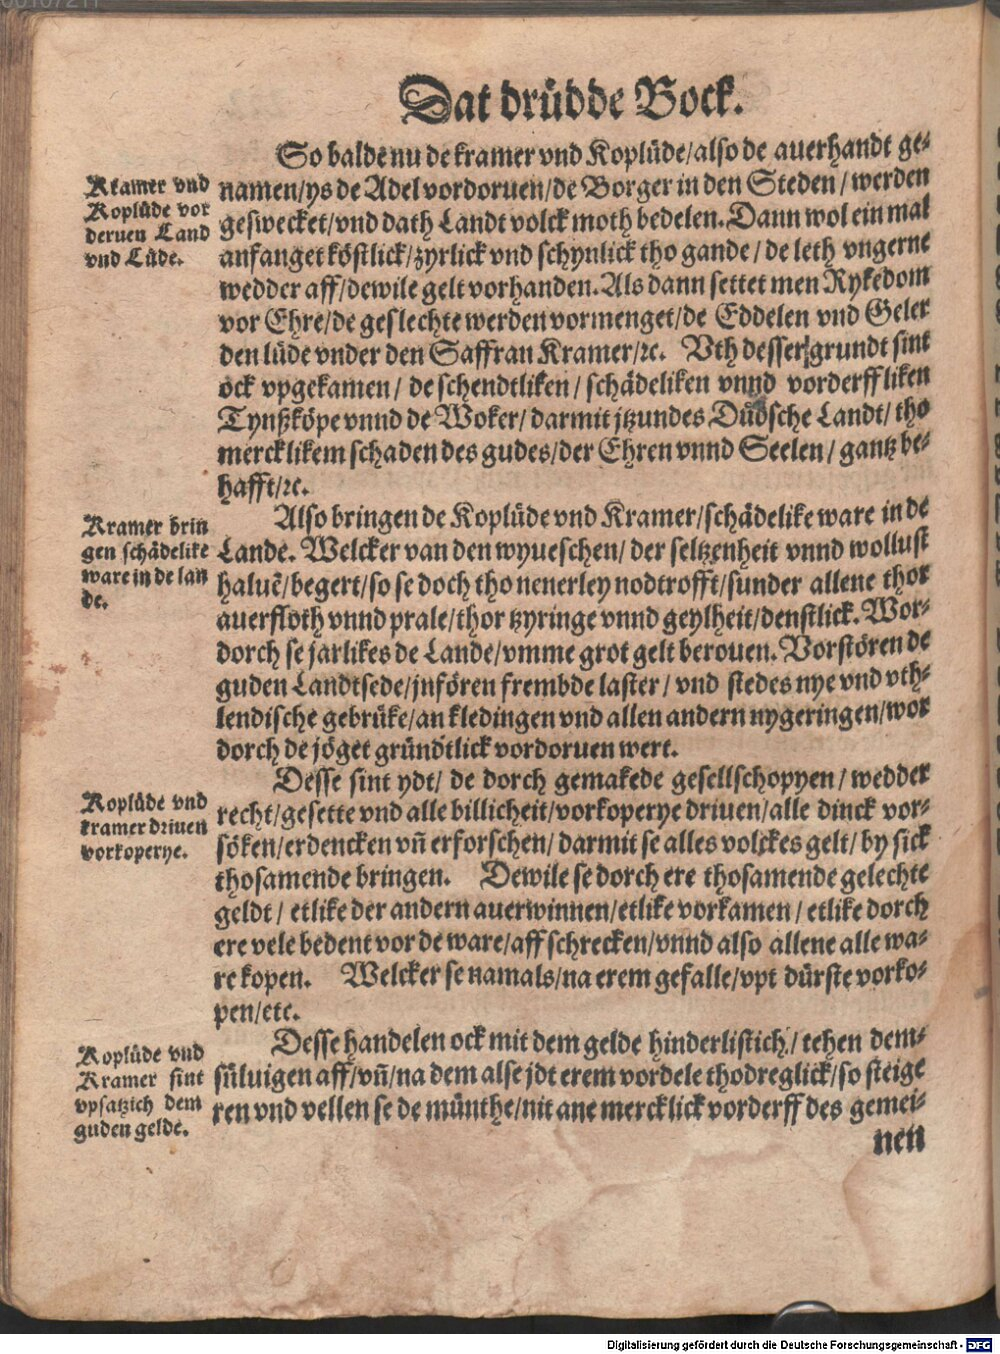 Dat drüdde Bock.
So balde nu de kramer vnd Koplüde/also de auerhandt ge-
namen/ys de Adel vordoruen/de Borger in den Steden/werden
geswecket/vnd dath Landt volck moth bedelen. Dann wol ein mal
anfanget köstlick/zyrlick vnd schynlick tho gande/de leth vngerne
wedder aff/dewile gelt vorhanden. Als dann settet men Rykedom
vor Ehre/de geslechte werden vormenget/de Eddelen vnd Geler
den lüde vnder den Saffran Kramer/ꝛc. Vth desser grundt sint
ock vpgekamen/de schendtliken/schädeliken vnnd vorderffliken
Tynßköpe vnnd de Woker/darmit jtzundes Düdsche Landt/tho
mercklikem schaden des gudes/der Ehren vnnd Seelen/gantz be-
hafft/ꝛc.
Kramer vnd
Koplüde vor
deruen Land
vnd Lüde.
Also bringen de Koplüde vnd Kramer/schädelike ware in de
Lande. Welcker van den wyueschen/der seltzenheit vnnd wollust
haluē/begert/so se doch tho nenerley nodtrofft/sunder allene thor
auerflöth vnnd prale/thor tzyringe vnnd geylheit/denstlick. Wor-
dorch se jarlikes de Lande/vmme grot gelt berouen. Vorstören de
guden Landtsede/jnfören frembde laster/vnd stedes nye vnd vth-
lendische gebrüke/an kledingen vnd allen andern nygeringen/wor
dorch de jöget gründtlick vordoruen wert.
Kramer brin
gen schädelike
ware in de lan
de.
Desse sint ydt/de dorch gemakede gesellschopyen/wedder
recht/gesette vnd alle billicheit/vorkoperye driuen/alle dinck vor-
söken/erdencken vn̄ erforschen/darmit se alles volckes gelt/by sick
thosamende bringen. Dewile se dorch ere thosamende gelechte
geldt/etlike der andern auerwinnen/etlike vorkamen/etlike dorch
ere vele bedent vor de ware/affschrecken/vnnd also allene alle wa-
re kopen. Welcker se namals/na erem gefalle/vpt dürste vorko-
pen/etc.
Koplüde vnd
kramer driuen
vorkoperye.
Desse handelen ock mit dem gelde hinderlistich/tehen dem-
sülluigen aff/vn̄/na dem alse jdt erem vordele thodreglick/so steige
ren vnd vellen se de münthe/nit ane mercklick vorderff des gemei-
nen
Koplüde vnd
Kramer sint
vpsatzich dem
guden gelde.
Digitalisierung gefördert durch die Deutsche Forschungsgemeinschaft - DFG